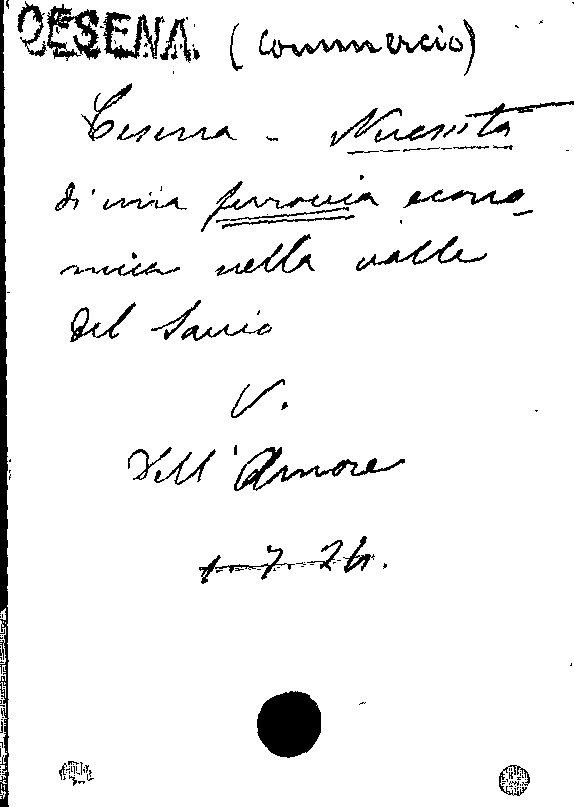 CESENA. (Commercio)
Cesena - Necessità
di una ferrovia econo-
mica nella valle
del Savio
V.
Dell'Amore